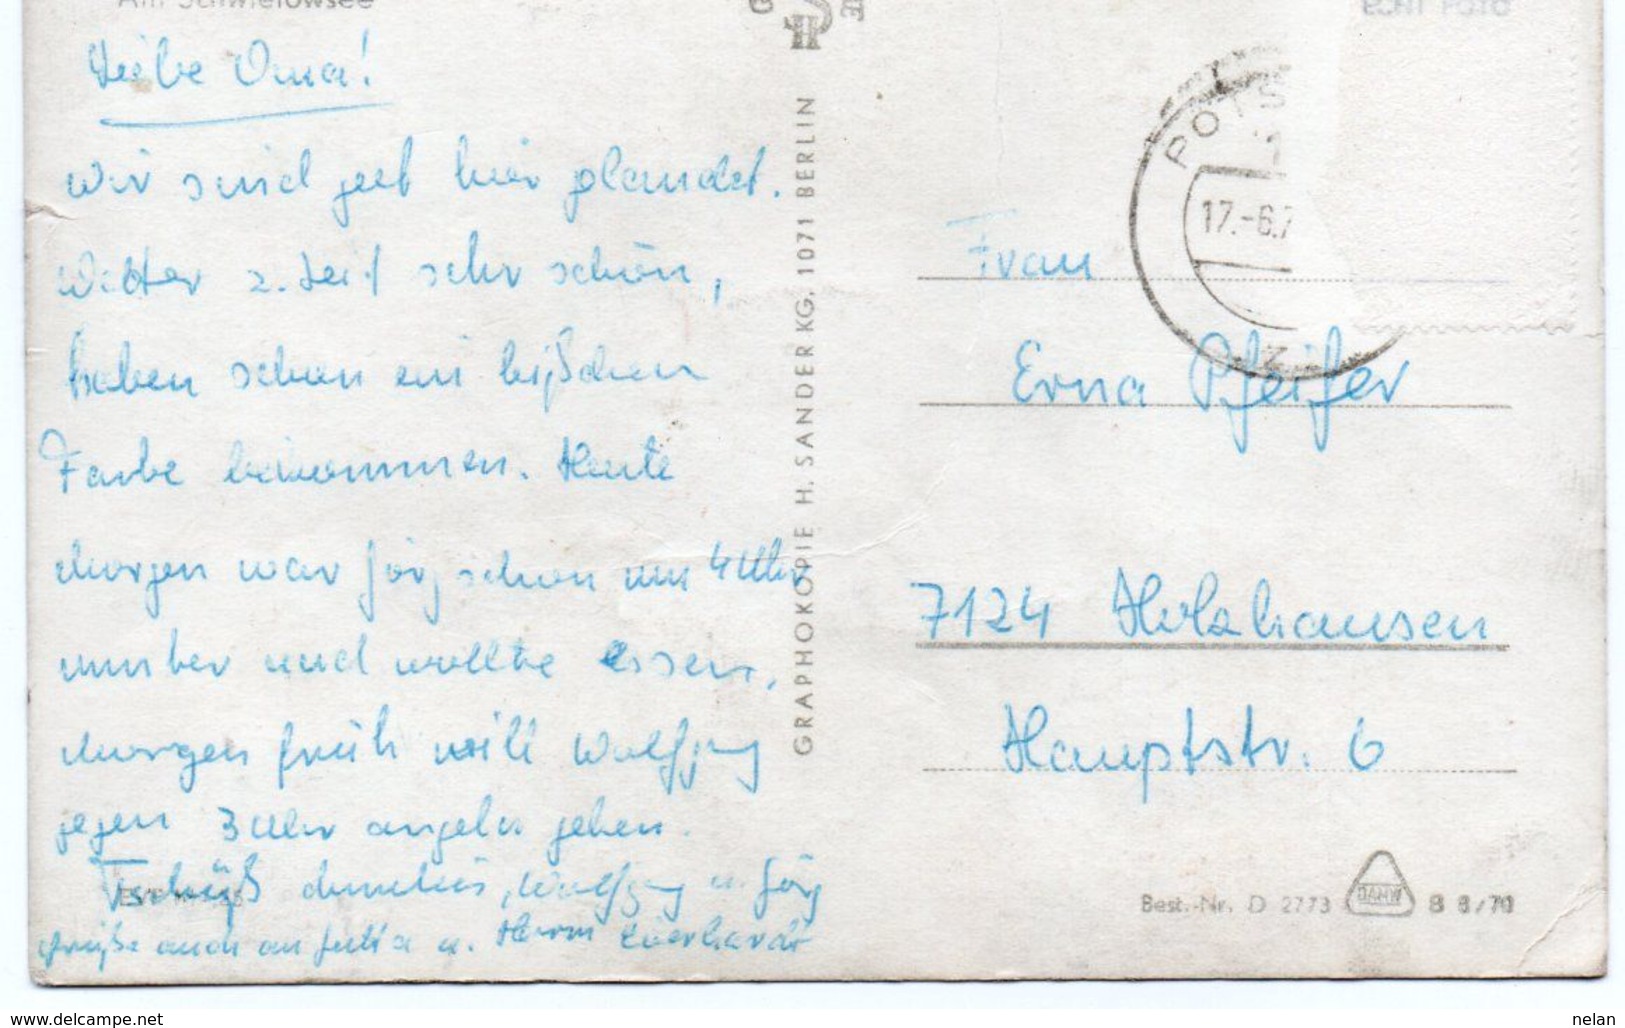 Am Schwielowsee
Liebe Oma!
Wir sind gut hier gelandet.
Wetter z. Zeit sehr schön,
haben schon ein bißchen
Farbe bekommen. Heute
Morgen war Jörg schon um 4 Uhr
munter und wollte essen,
Morgen früh will Wolfgang
gegen 3 Uhr angeln gehen.
Tschüß Wolfgang u. Jörg
Grüße auch an Jutta u. Herrn Eberhardt
GRAPHOKOPIE H. SANDER KG, 1071 BERLIN
POTS
1
17.-6.7
Z
Frau
Erna Pfeifer
7124 Holzhausen
Hauptstr. 6
Best.-Nr. D 2773
www.delcampe.net
nelan